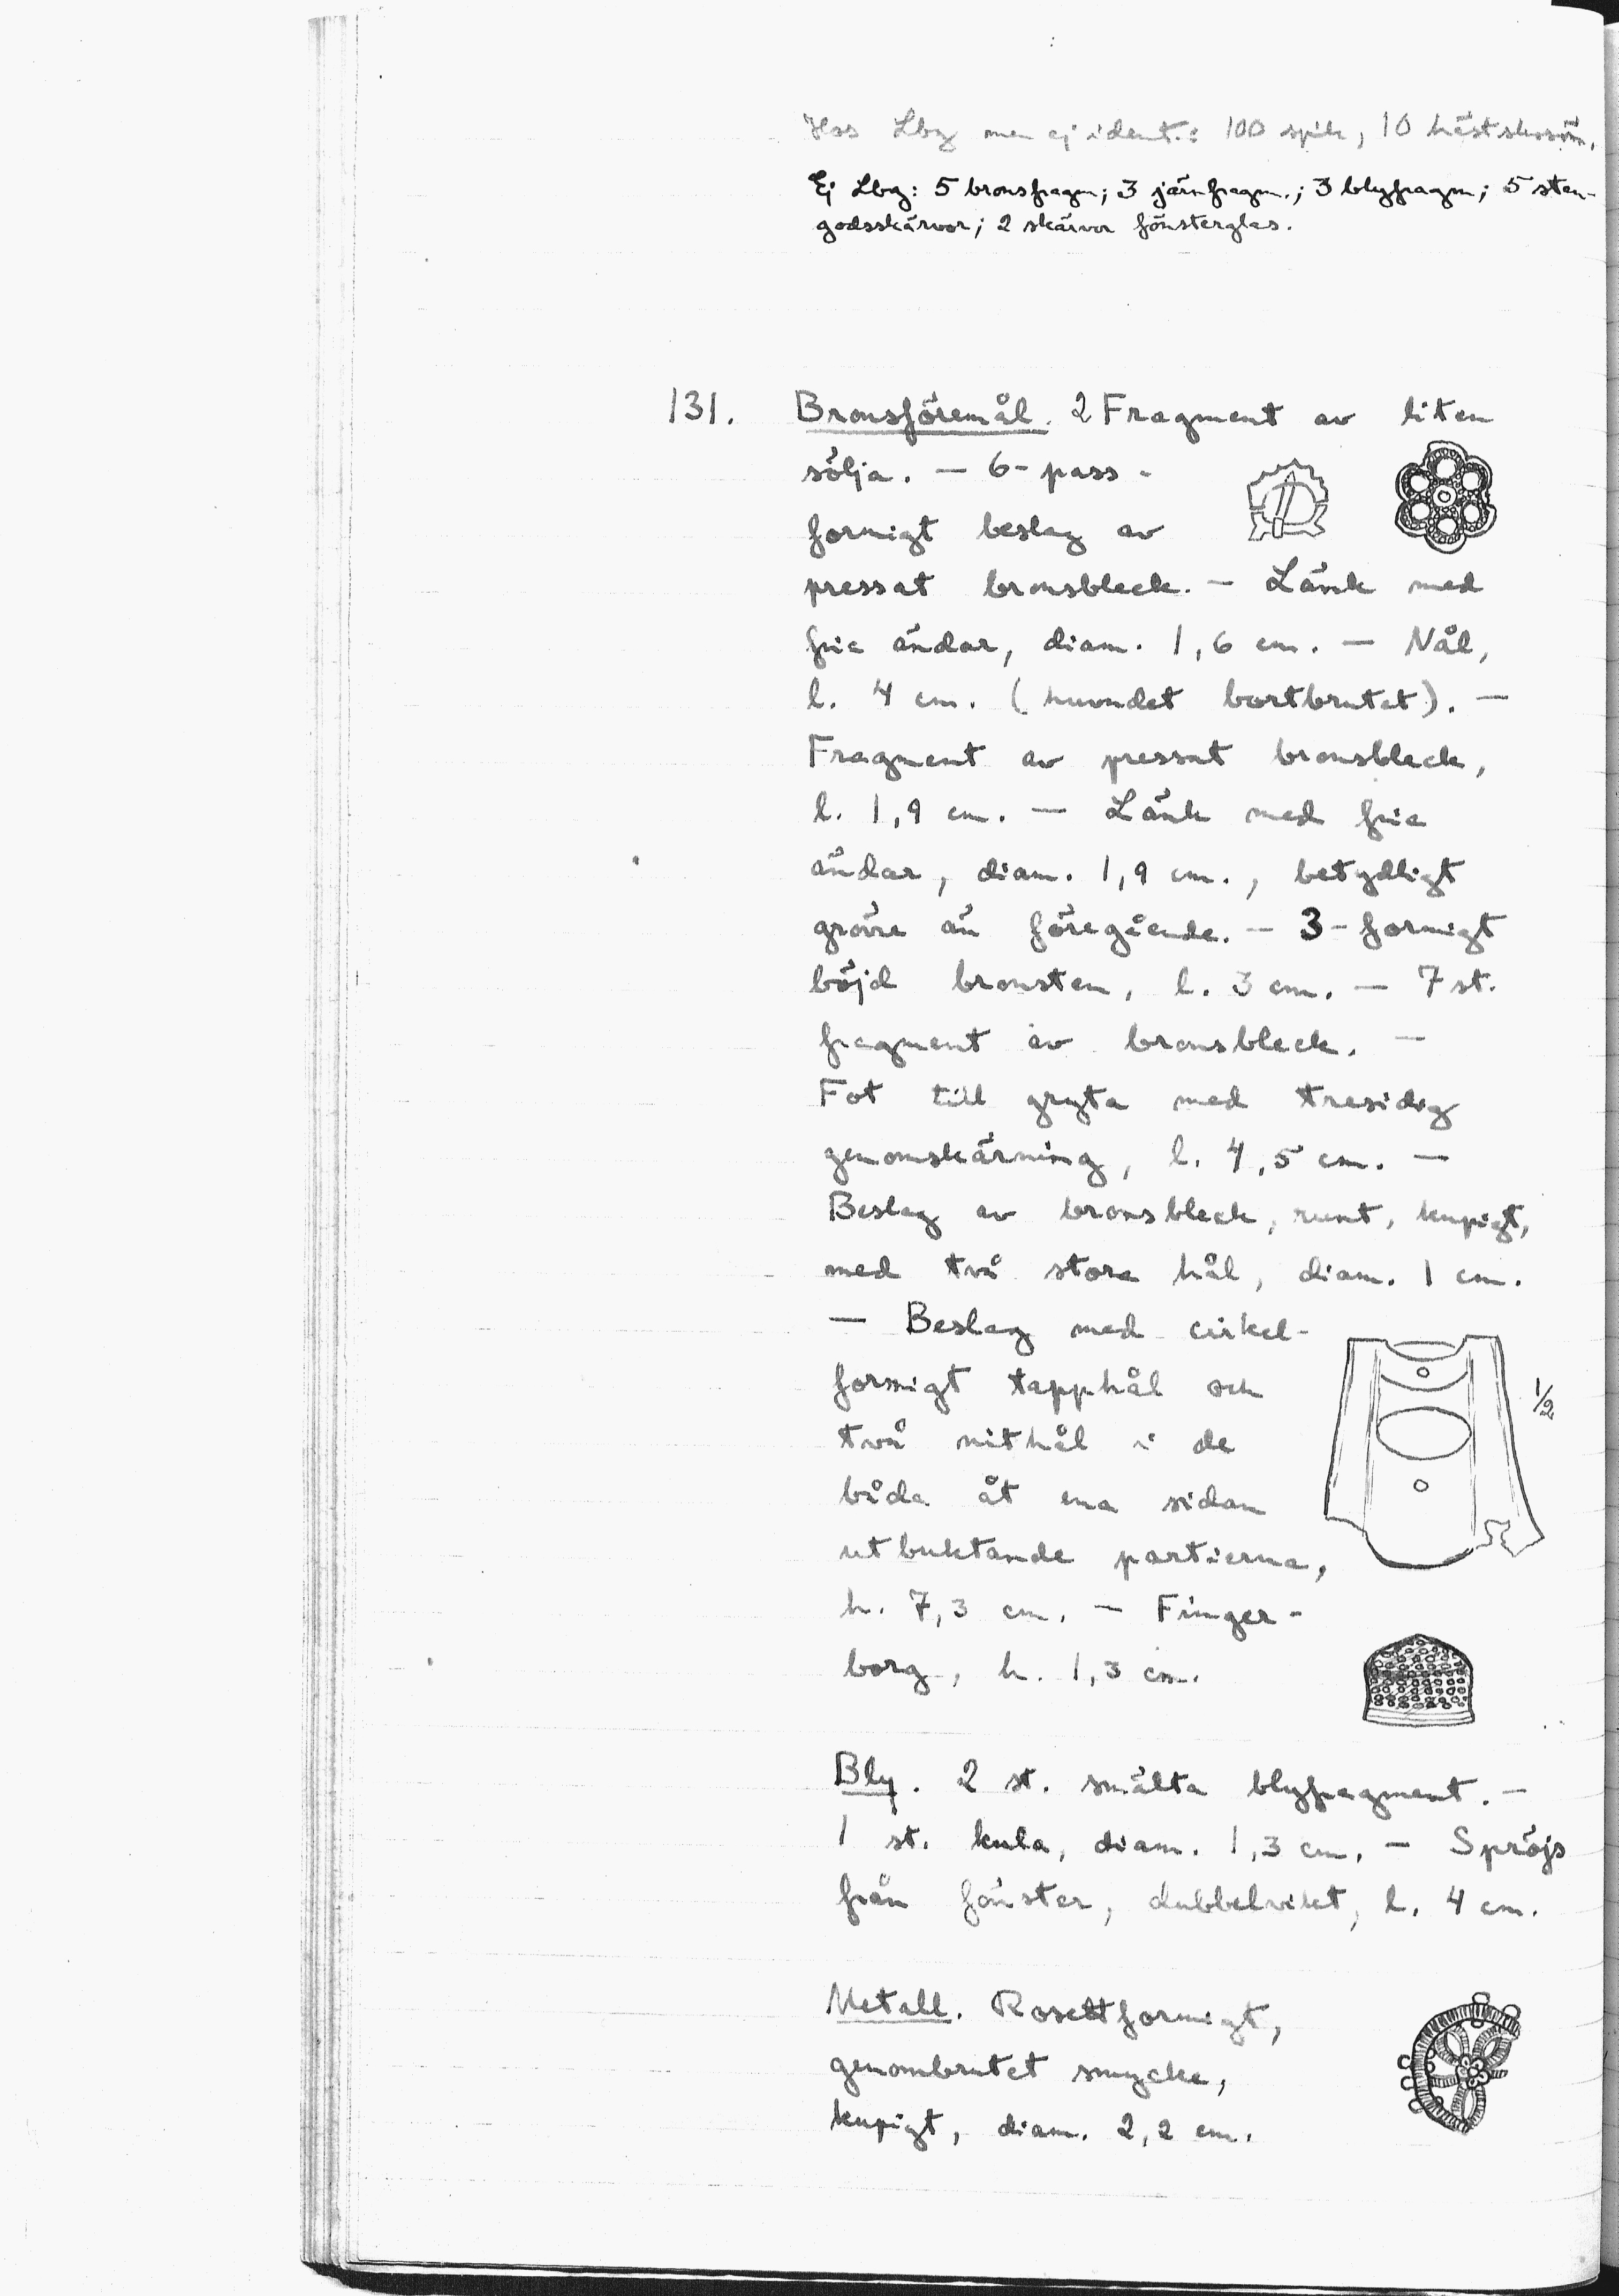 Hos Lbg men ej ident.: 100 spik, 10 hästskosöm.
Ej Lbg: 5 bronsfragm; 3 järnfragm.; 3 blyfragm; 5 sten-
godsskärvor; 2 skärvor fönsterglas.
131. Bronsföremål. 2 Fragment av liten
sölja. — 6-pass-
formigt beslag av
pressat bronsbleck. — Länk med
fria ändar, diam. 1,6 cm. — Nål,
l. 4 cm. (huvudet bortbrutet). —
Fragment av pressat bronsbleck,
l. 1,9 cm. — Länk med fria
ändar, diam. 1,9 cm., betydligt
grövre än föregående. — 3-formigt
böjd bronsten, l. 3 cm. — 7 st.
fragment av bronsbleck. —
Fot till gryta med tresidig
genomskärning, l. 4,5 cm. —
Beslag av bronsbleck, runt, kupigt,
med två stora hål, diam. 1 cm.
— Beslag med cirkel-
formigt tapphål och
två nithål i de
båda åt ena sidan
utbuktande partierna,
1/2
h. 7,3 cm. — Finger-
borg, h. 1,3 cm.
Bly. 2 st. smälta blyfragment. —
1 st. kula, diam. 1,3 cm. — Spröjs
från fönster, dubbelvikt, l. 4 cm.
Metall. Rosettformigt,
genombrutet smycke,
kupigt, diam. 2,2 cm.